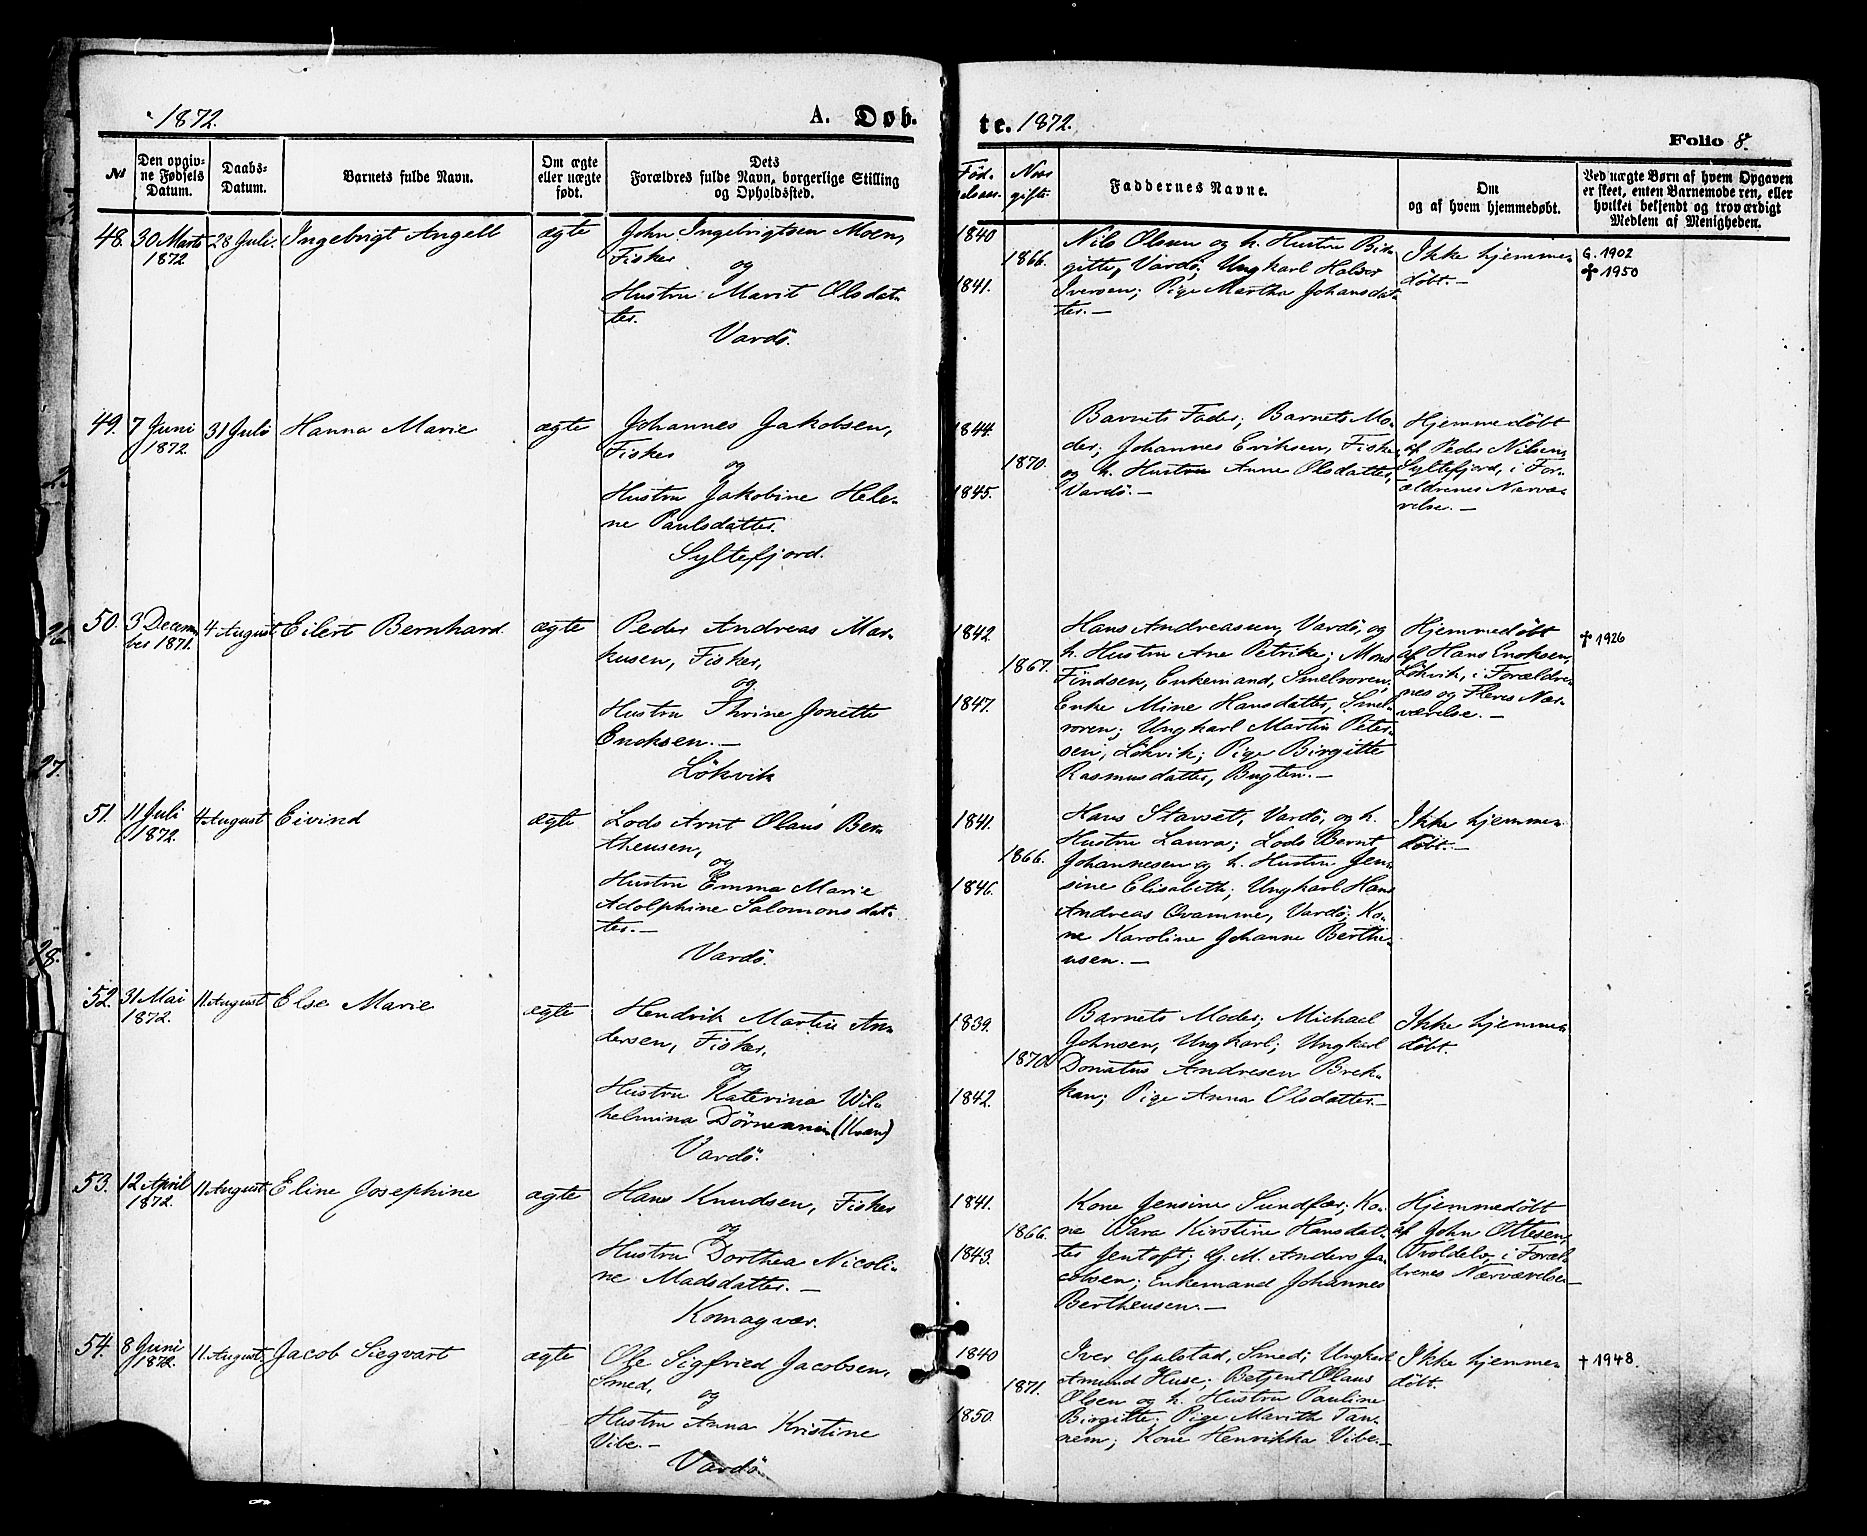 1872.
A. Døb-
te. 1872.
Folio 8.
№
Den opgiv-
ne Fødsels
Datum.
Daabs-
Datum.
Barnets fulde Navn.
Om ægte
eller uægte
født.
Dets
Forældres fulde Navn, borgerlige Stilling
og Opholdssted.
Faddernes Navne.
Om
og af hvem hjemmedøbt.
Ved uægte Børn af hvem Opgaven
er skeet, enten Barnemoderen, eller
hvilket bekjendt og troværdigt
Medlem af Menigheden.
48.
30 Marts
1872
28 Juli.
Ingebrigt Angell
ægte
John Ingebrigtsen Moen,
Fisker
og
Hustru Marit Olsdat-
ter.
Vardö.
1840
1866.
1841.
Nils Olsen og h. Hustru Bir-
gitte, Vardö; Ungkarl Halvor
Iversen; Pige Martha Johansdat-
ter.—
Ikke hjemme-
døbt.—
G. 1902
✝ 1950
49.
7 Juni
1872
31 Juli
Hanna Marie
ægte
Johannes Jakobsen,
Fisker
og
Hustru Jakobine Hele-
ne Paulsdatter.
Syltefjord.
1844.
1870.
1845.
Barnets Fader; Barnets Mo-
der; Johannes Eriksen, Fisker
og h. Hustru Anne Olsdatter,
Vardö.—
Hjemmedøbt
af Peder Nilsen,
Syltefjord, i For-
ældrenes Nærvæ-
relse.—
50.
3 Decem-
ber 1871.
4 August
Eilert Bernhard.
ægte
Peder Andreas Mar-
kusen, Fisker,
og
Hustru Thrine Jonette
Enoksen.—
Lökvik
1842.
1867.
1847.
Hans Andreassen, Vardö, og
h. Hustru Ane Petrike; Mons
Findsen, Enkemand, Smelroren;
Enke Mine Hansdatter, Smel-
roren; Ungkarl Martin Peter-
sen, Lökvik; Pige Birgitte
Rasmusdatter, Bugten.—
Hjemmedøbt
af Hans Enoksen,
Lökvik, i Forældre-
nes og Fleres Nær-
værelse.—
✝ 1926
51.
11 Juli
1872.
4 August
Eivind
ægte
Lods Arnt Olaus Ber-
theusen,
og
Hustru Emma Marie
Adolphine Salomonsdat-
ter.—
Vardö.
1841.
1866.
1846.
Hans Stavset, Vardö, og h.
Hustru Laura; Lods Bernt
Johannesen og h. Hustru Jen-
sine Elisabeth; Ungkarl Hans
Andreas Qvamme, Vardö; Ko-
ne Karoline Johanne Berthe-
usen.—
Ikke hjemme-
døbt.—
52.
31 Mai
1872.
11 August
Else Marie
ægte
Hendrik Martin An-
dersen, Fisker,
og
Hustru Katerina Wil-
helmina (Kvæn)
Vardö.
1839.
1870.
1842.
Barnets Moder; Michael
Johnsen, Ungkarl; Ungkarl
Donatus Andresen Brek-
kan; Pige Anna Olsdatter.—
Ikke hjemme-
døbt.
53.
12 April
1872.
11 August
Eline Josephine
ægte
Hans Knudsen, Fisker
og
Hustru Dorthea Nicoli-
ne Madsdatter.—
Komagvær.
1841.
1866.
1843.
Kone Jensine Sundfær; Ko-
ne Sara Kirstine Hansdat-
ter Jentoft; G. M. Anders Ja-
cobsen; Enkemand Johannes
Bertheusen.—
Hjemmedøbt
af John Ottesen,
i Foræl-
drenes Nærværelse—
54.
8 Juni
1872.
11 August.
Jacob Siegvart
ægte
Ole Sigfried Jacobsen,
Smed,
og
Hustru Anna Kristine
Vibe.—
Vardö.
1840
1871.
1850.
Iver Gulstad, Smed; Ungkarl
Amund Huse; Betjent Olaus
Olsen og h. Hustru Pauline
Birgitte; Pige Marith Tan-
nem; Kone Henrikka Vibe.—
Ikke hjemme-
døbt.
✝ 1948.
27.
28.